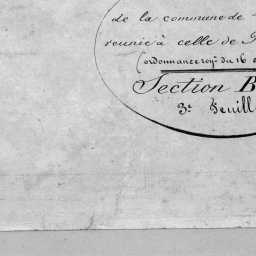 de la commune de
reunie à celle de
(ordonnance roy. du 16
Section B
3e Feuill